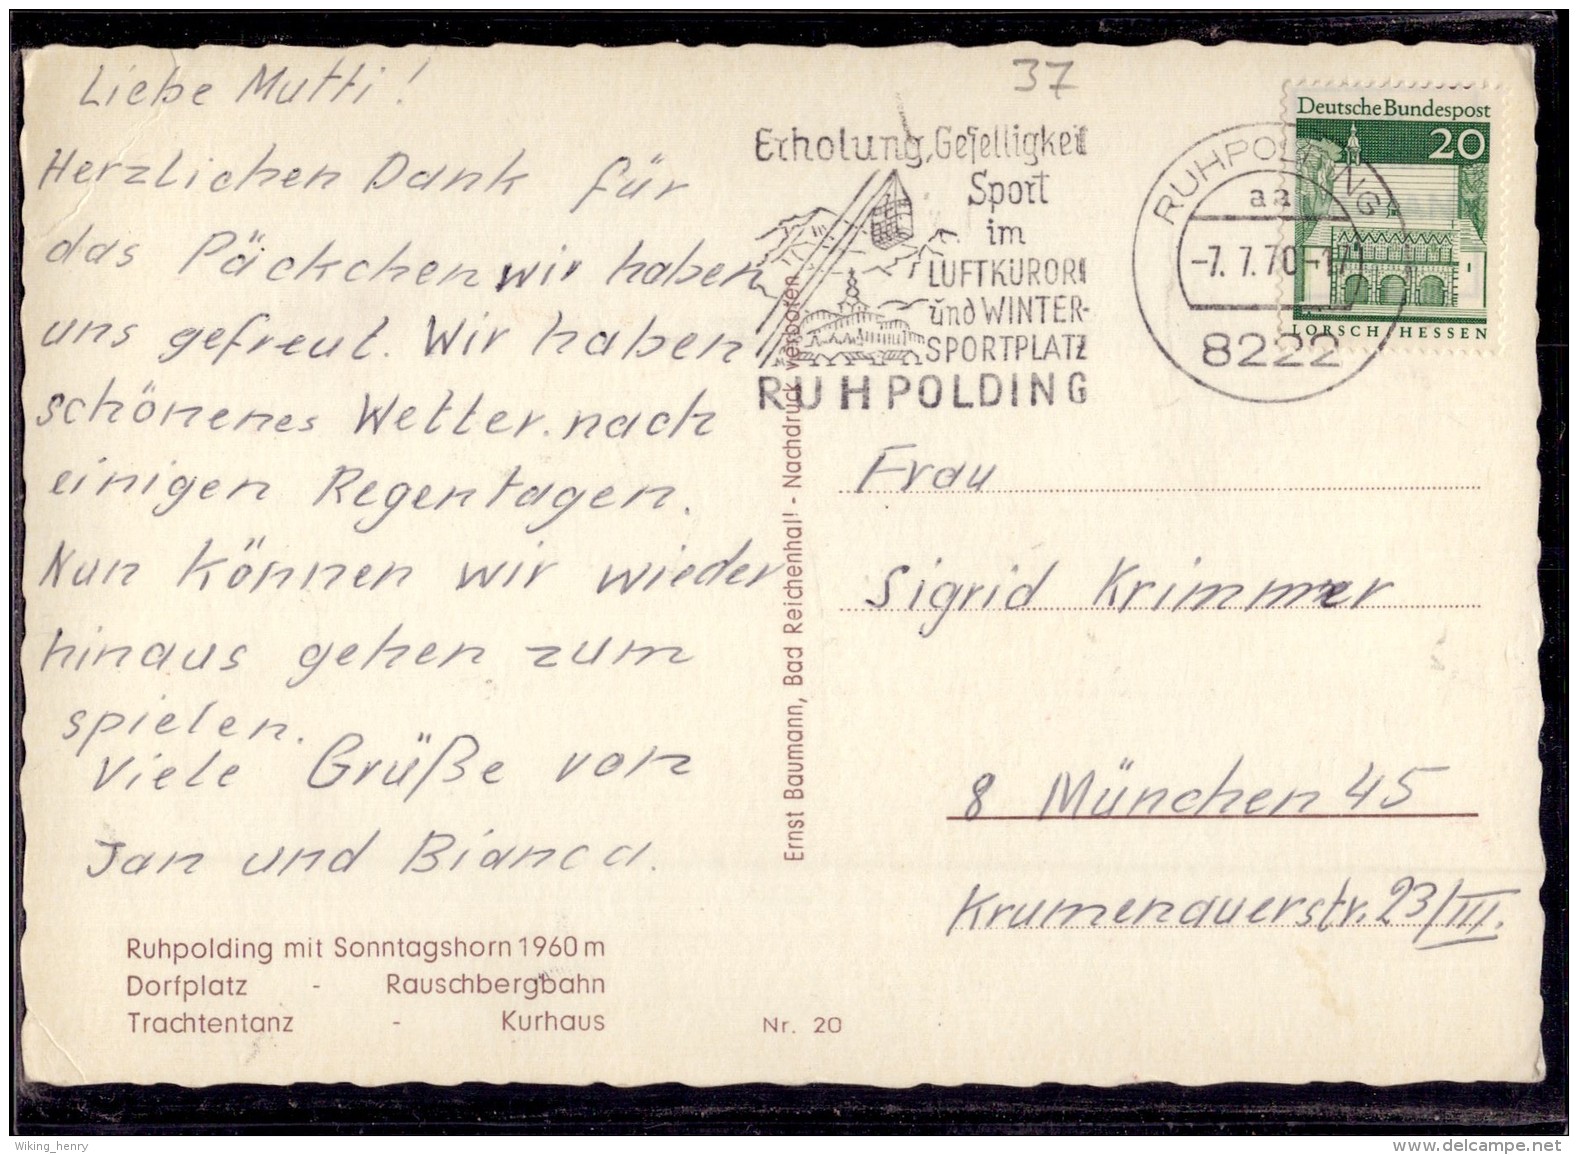 Liebe Mutti!
Herzlichen Dank für
das Päckchen wir haben
uns gefreut. Wir haben
schönenes Wetter. nach
einigen Regentagen.
Nun können wir wieder
hinaus gehen zum
spielen.
Viele Grüße von
Jan und Bianca.
Ruhpolding mit Sonntagshorn 1960 m
Dorfplatz - Rauschbergbahn
Trachtentanz - Kurhaus
Nr. 20
Ernst Baumann, Bad Reichenhall - Nachdruck verboten
37
Erholung, Geselligkeit
Sport
im
LUFTKURORT
und WINTER-
SPORTPLATZ
RUHPOLDING
RUHPOLDING
aa
-7. 7. 70-17
8222
Deutsche Bundespost
20
LORSCH/HESSEN
Frau
Sigrid Krimmer
8 München 45
Krumenauerstr. 23/III.
Wiking_henry
www.delcampe.net